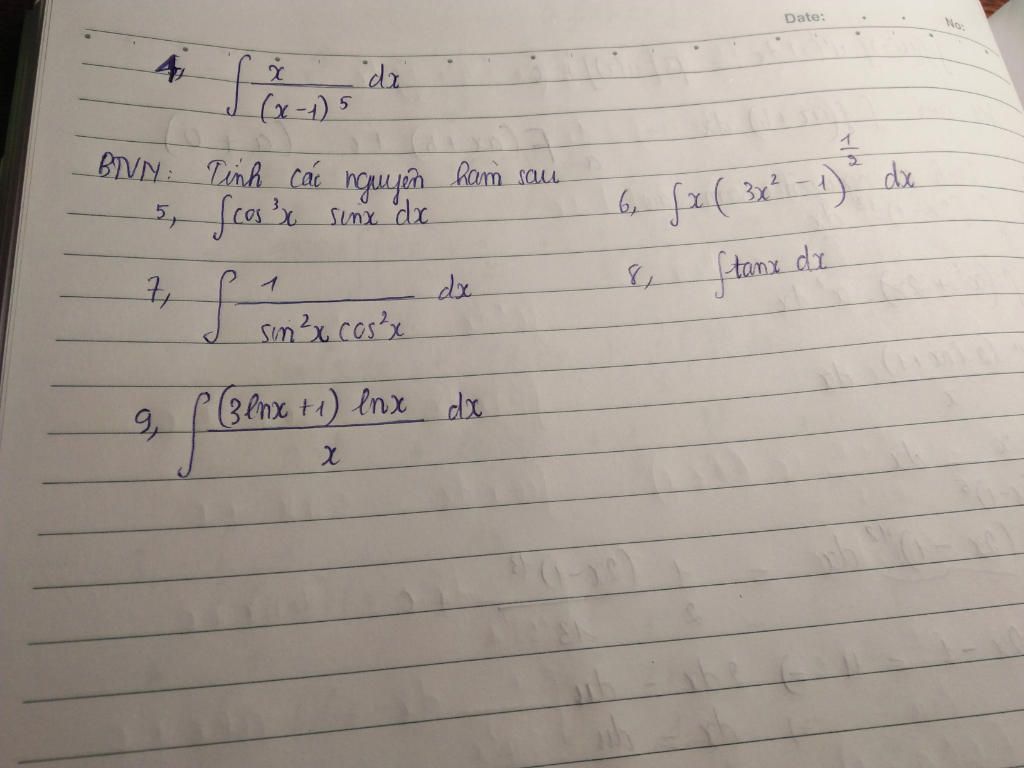 Date: No:
4, ∫ x/(x-1)^5 dx
BTVN: Tính các nguyên hàm sau
5, ∫cos^3x sinx dx 6, ∫x(3x^2-1)^(1/2) dx
7, ∫ 1/(sin^2x cos^2x) dx 8, ∫tanx dx
9, ∫ (3lnx+1) lnx/x dx